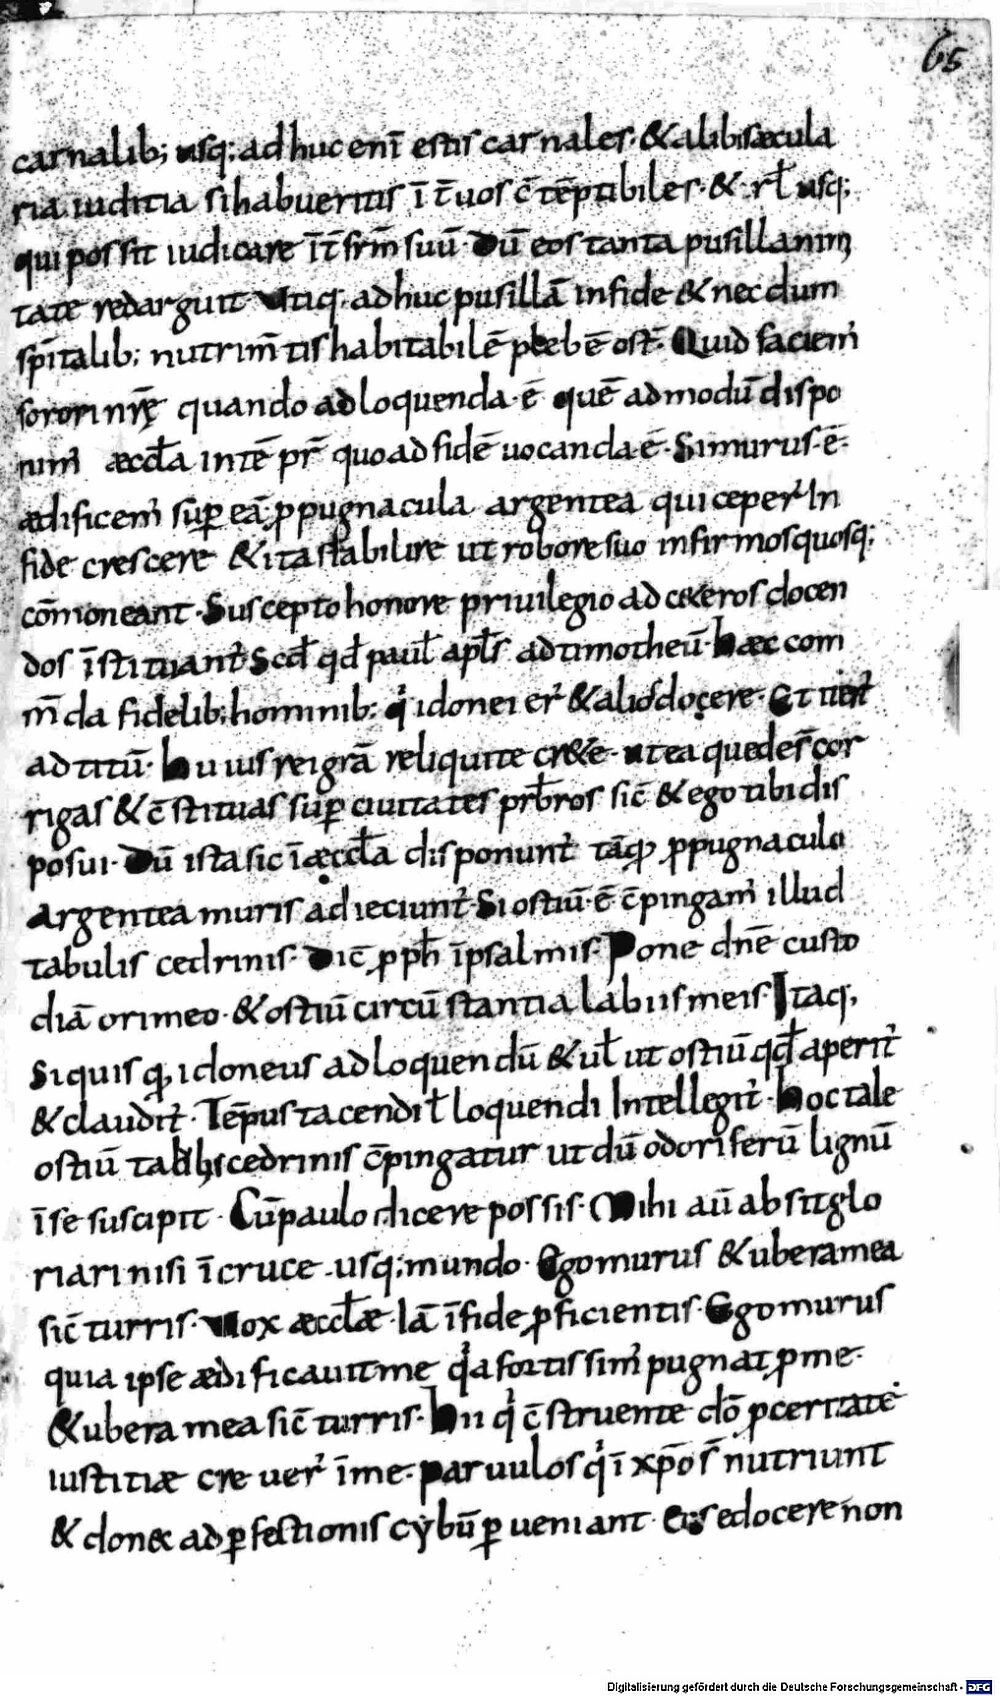 65
carnalib; usq; adhuc enī estis carnales · & alibi sæcula
ria iuditia si habueritis ī t̄ uos c̄tēptibiles · & rł usq;
qui possit iudicare īt̄ fr̄m suū · Dū eos tanta pusillanimi
tate redarguit Vtiq; adhuc pusillā in fide & nec dum
sp̄italib; nutrim̄tis habitabilē plebē ost̄ · Quid faciem᷒
sorori nr̄ę quando adloquenda · ē quē admodū dispo
nim᷒ æccłła intē pr̄ quo ad fidē uocanda ē · Si murus · ē ·
ædificem᷒ sup̱ eā; p̱pugnacula argentea qui ceper᷒ In
fide crescere & ita stabilire ut robore suo infirmos quosq;
cōmoneant · Suscepto honore priuilegio ad c&eros docen
dos īstituant᷒ Scđ qđ pauł apłs ad timotheū · Hæc com
m̄da fidelib; hominib; q᷒ idonei er᷒ & alios docere · Et
ad titū · Huius rei grā reliqui te cr&e · ut ea que des̄ cor
rigas & c̄stituas sup̱ ciuitates pr̄bros sic̄ & ego tibi dis
posui · Dū ista sic ī æccłła disponunt᷒ tāq̱ p̱pugnacula
argentea muris adieciunt᷒ · Si ostiū · ē c̄pingam᷒ illud
tabulis cedrinis · Dic̄ p̱pħ īpsalmis · Pone dn̄e custo
diā ori meo · & ostiū circū stantia labiis meis · Itaq,
Siquis q̱ idoneus ad loquendū & uł ut ostiū qđ aperit᷒
& claudit᷒ · Tēpus tacendi ł loquendi Intellegit᷒ · Hoc tale
ostiū tabłis cedrinis c̄pingatur ut dū odoriferū lignū
īse suscipit · Cū paulo dicere possis · Mihi aū absit glo
riari nisi ī cruce · usq; mundo · Ego murus & ubera mea
sic̄ turris · Vox æccłæ · Iā īfide p̱ficientis · Ego murus
quia ipse ædificauit me q᷒a fortissim᷒ pugnat p̱ me ·
& ubera mea sic̄ turris · Hii q᷒ c̄struente dō p̱ certatē
iustitiæ creuer᷒ īme · paruulos q᷒ ī xp̄o s̄ nutriunt
& donec ad p̱fectionis cybū p̱ueniant · Eos edocere non
Digitalisierung gefördert durch die Deutsche Forschungsgemeinschaft - DFG